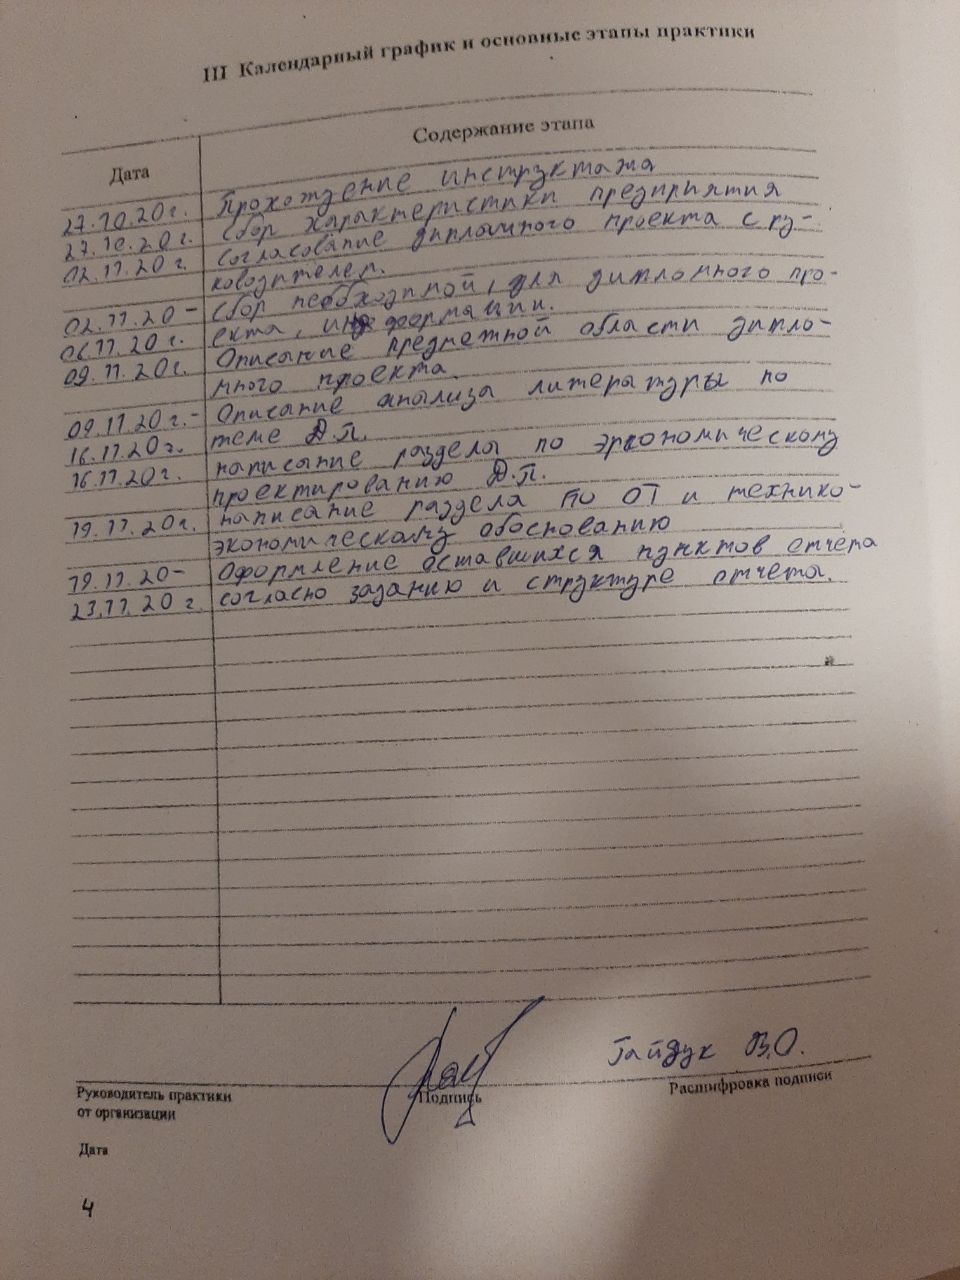 III Календарный график и основные этапы практики
Дата Содержание этапа
27.10.20г. Прохождение инструктажа
27.10.20г. Сбор характеристики предприятия
02.11.20г. Согласование дипломного проекта с ру-
ководителем.
02.11.20- Сбор необходимой, для дипломного про-
06.11.20г. екта, информации.
09.11.20г. Описание предметной области дипло-
много проекта
09.11.20г.- Описание анализа литературы по
16.11.20г. теме Д.П.
16.11.20г. написание раздела по эргономическому
проектированию Д.П.
19.11.20г. написание раздела по ОТ и технико-
экономическому обоснованию
19.11.20- Оформление оставшихся пунктов отчета
23.11.20г. согласно заданию и структуре отчета.
Гайдук В.О.
Руководитель практики Подпись Расшифровка подписи
от организации
Дата
4